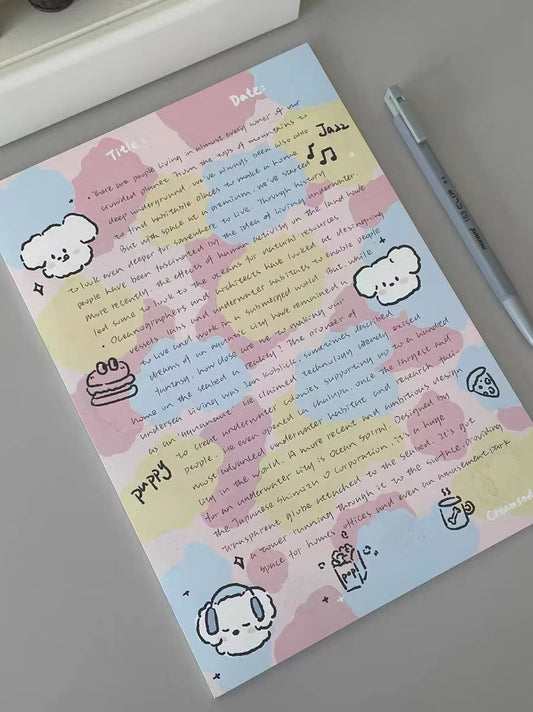 Date:
Title:
Jazz
• There are people living in almost every corner of our
crowded planet, from the tops of mountains to
deep underground. We've always been able
to find habitable places to make a home
But with space at a premium, we've started
to look even deeper somewhere to live. Through history
people have been fascinated by the idea of living underwater.
More recently, the effects of human activity on the land have
led some to look to oceans for natural resources.
• Oceanographers and architects have looked at designing
vessels, labs and underwater habitats to enable people
to live and work in a submerged world. But while
dreams of an aquatic city have remained a
fantasy, how close are we to making our
home on the seabed a reality? The pioneer of
undersea living was Ian Koblick, sometimes described
as an "aquanaut". He claimed technology already existed
to create underwater colonies supporting up to a hundred
people. He even opened a chain, once the largest and
most advanced underwater habitat and research faci-
lity in the world. A more recent and ambitious design
for an underwater city is Ocean Spiral. Designed by
the Japanese Shimizu Corporation, it's a huge
transparent globe attached to the seabed. It's got
a tower running through it to the surface, providing
space for homes, offices and even an amusement park
puppy
pop!
Creamsod